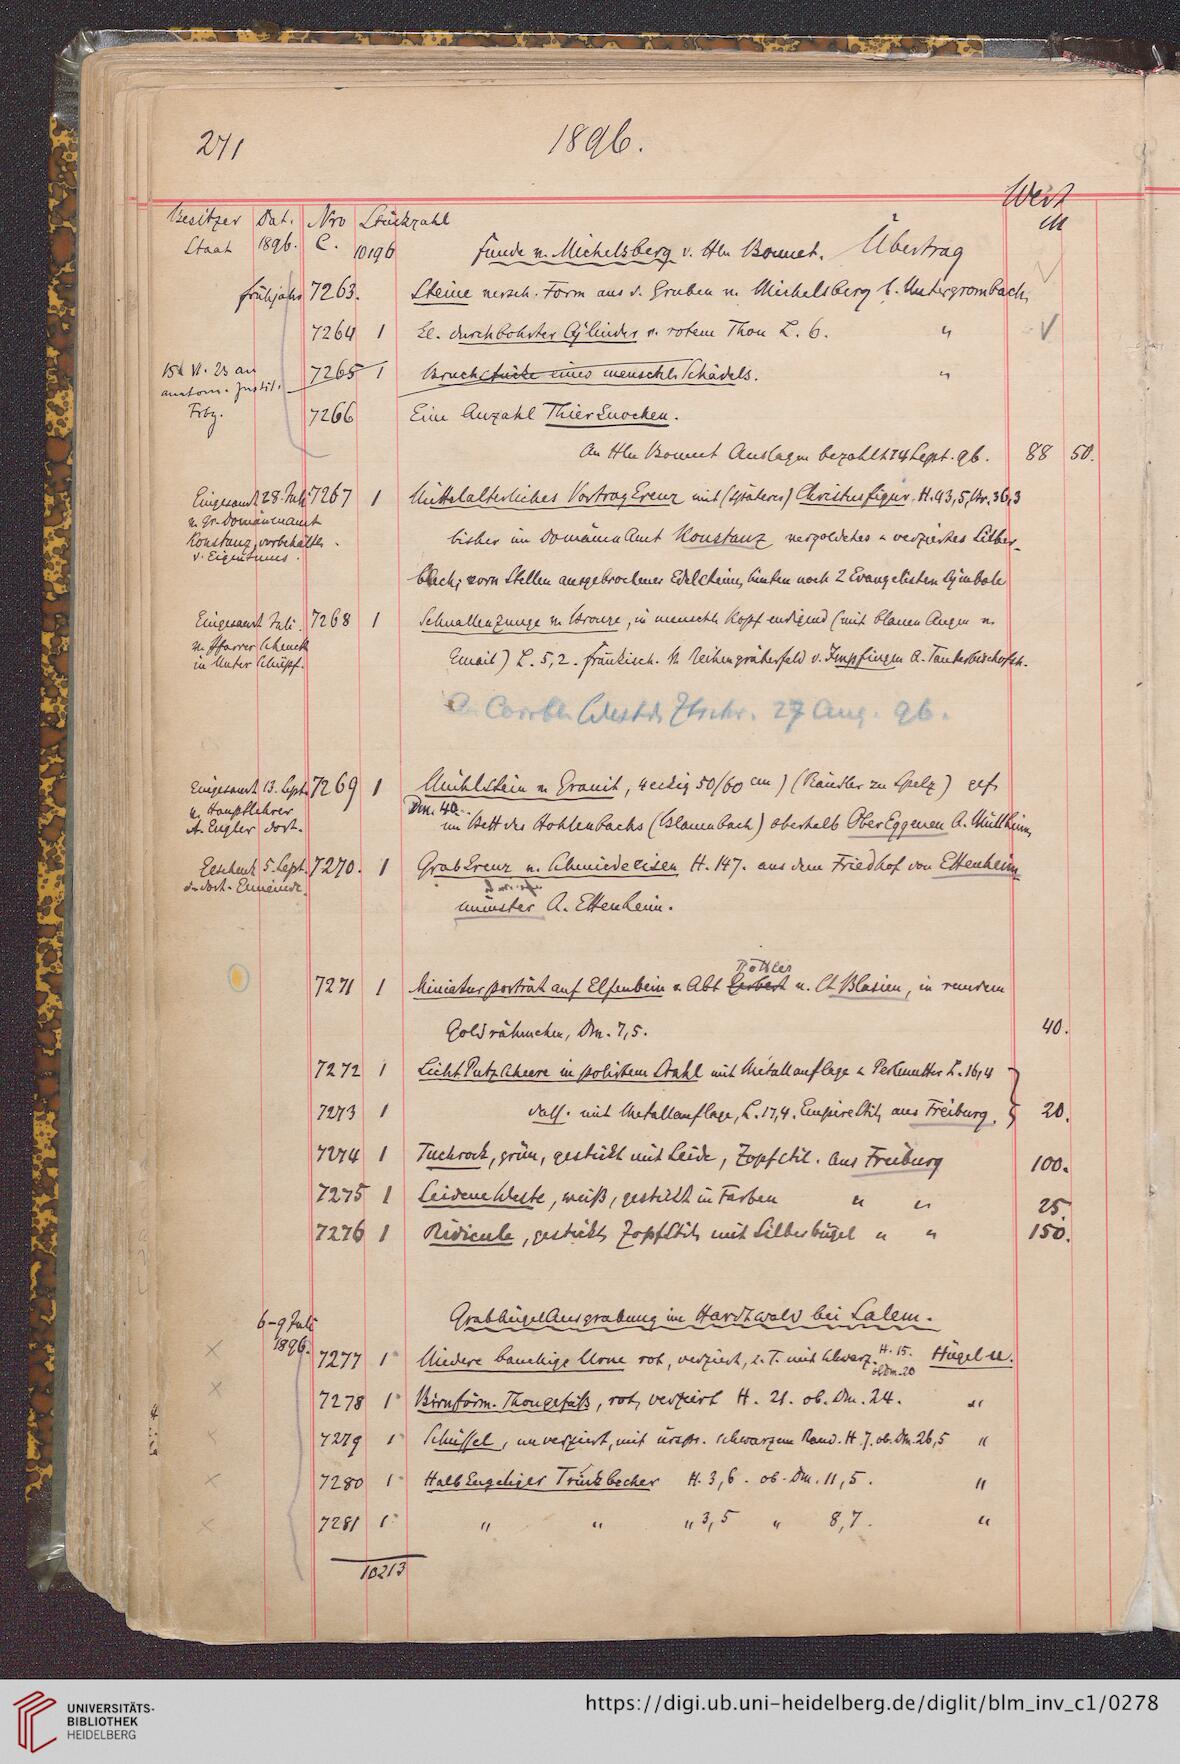 271
1896.
Wert
Besitzer Dat. Nro Stückzahl M
Staat 1896. C. 10196 Funde v. Michelsberg v. Hln Bonnet. Übertrag
Frühjahr 7263. Steine versch. Form aus d. Gruben v. Michelsberg b. Untergrombach,
7264 1 durchbohrter Cylinder v. rotem Thon L. 6. "
7265 1 Bruchstücke eines menschl. Schädels. "
15/ VI. 23 an
anatom. Instit.
Frbg.
7266 Eine Anzahl Thierknochen.
An Hln Bonnet Auslagen bezahlt 24 Sept. 96. 88 50.
Eingesandt 28. Juli 7267 1 Mittelalterliches Vortragkreuz mit (späterer) Christusfigur. H. 43,5, Br. 36,3
v. Gr. Domänenamt
Konstanz, vorbehaltl.
d. Eigentums.
bisher im Domänen Amt Konstanz vergoldetes u. verziertes Silber-
blech; vorn Stellen ausgebrochener Edelsteine, hinten noch 2 Evangelisten Symbole
Eingesandt Juli. 7268 1 Schnallenzunge v. Bronze, in menschl. Kopf endigend (mit blauen Augen v.
v. Pfarrer Schenck
in Unter Schüpf.
Email) L. 5,2. fränkisch. A. Reihengräberfeld v. Impfingen A. Tauberbischofsh.
Corrbl. Westd. Ztschr. 27 Aug. 96.
Eingesandt 13. Sept. 7269 1 Mühlstein v. Granit, 4eckig 50/60 cm) (Rändler zu Spelz) gef.
v. Hauptlehrer
A. Engler dort.
Dm. 40.
im Bett des Hohlenbachs (Blauenbach) oberhalb Ober Eggenen A. Müllheim,
Geschenk 5. Sept. 7270. 1 Grabkreuz v. Schmiedeeisen H. 147. aus dem Friedhof von Ettenheim-
d. dort. Gemeinde.
münster A. Ettenheim.
7271 1 Miniaturporträt auf Elfenbein v. Abt Gerbert v. St Blasien, in rundem
Goldrähmchen, Dm. 7,5. 40.
7272 1 LichtPutzscheere in polirtem Stahl mit Metallauflage u. Perlmutter L. 16,4
7273 1 dass. mit Metallauflage, L. 17,4. EmpireStil, aus Freiburg. 20.
7274 1 Tuchrock, grün, gestickt mit Seide, Zopfstil. aus Freiburg 100.
7275 1 Seidene Weste, weiß, gestickt in Farben " " 25.
7276 1 Ridicule, gestickt, ZopfStil, mit Silberbügel " " 150.
6-9 Juli
1896.
GrabhügelAusgrabung im Hardtwald bei Salem.
7277 1 Niedere bauchige Urne rot, verziert, z. T. mit schwarz. H. 15. ob Dm. 20 Hügel
7278 1 Birnförm. Thongefäß, rot, verziert H. 21. ob. Dm. 24. "
7279 1 Schüssel, unverziert, mit urspr. schwarzem Rand. H. 7. ob. Dm. 26,5 "
7280 1 Halbkugeliger Trinkbecher H. 3,6. ob. Dm. 11,5. "
7281 1 " " " 3,5 " 8,7. "
10213
UNIVERSITÄTS-
BIBLIOTHEK
HEIDELBERG
https://digi.ub.uni-heidelberg.de/diglit/blm_inv_c1/0278